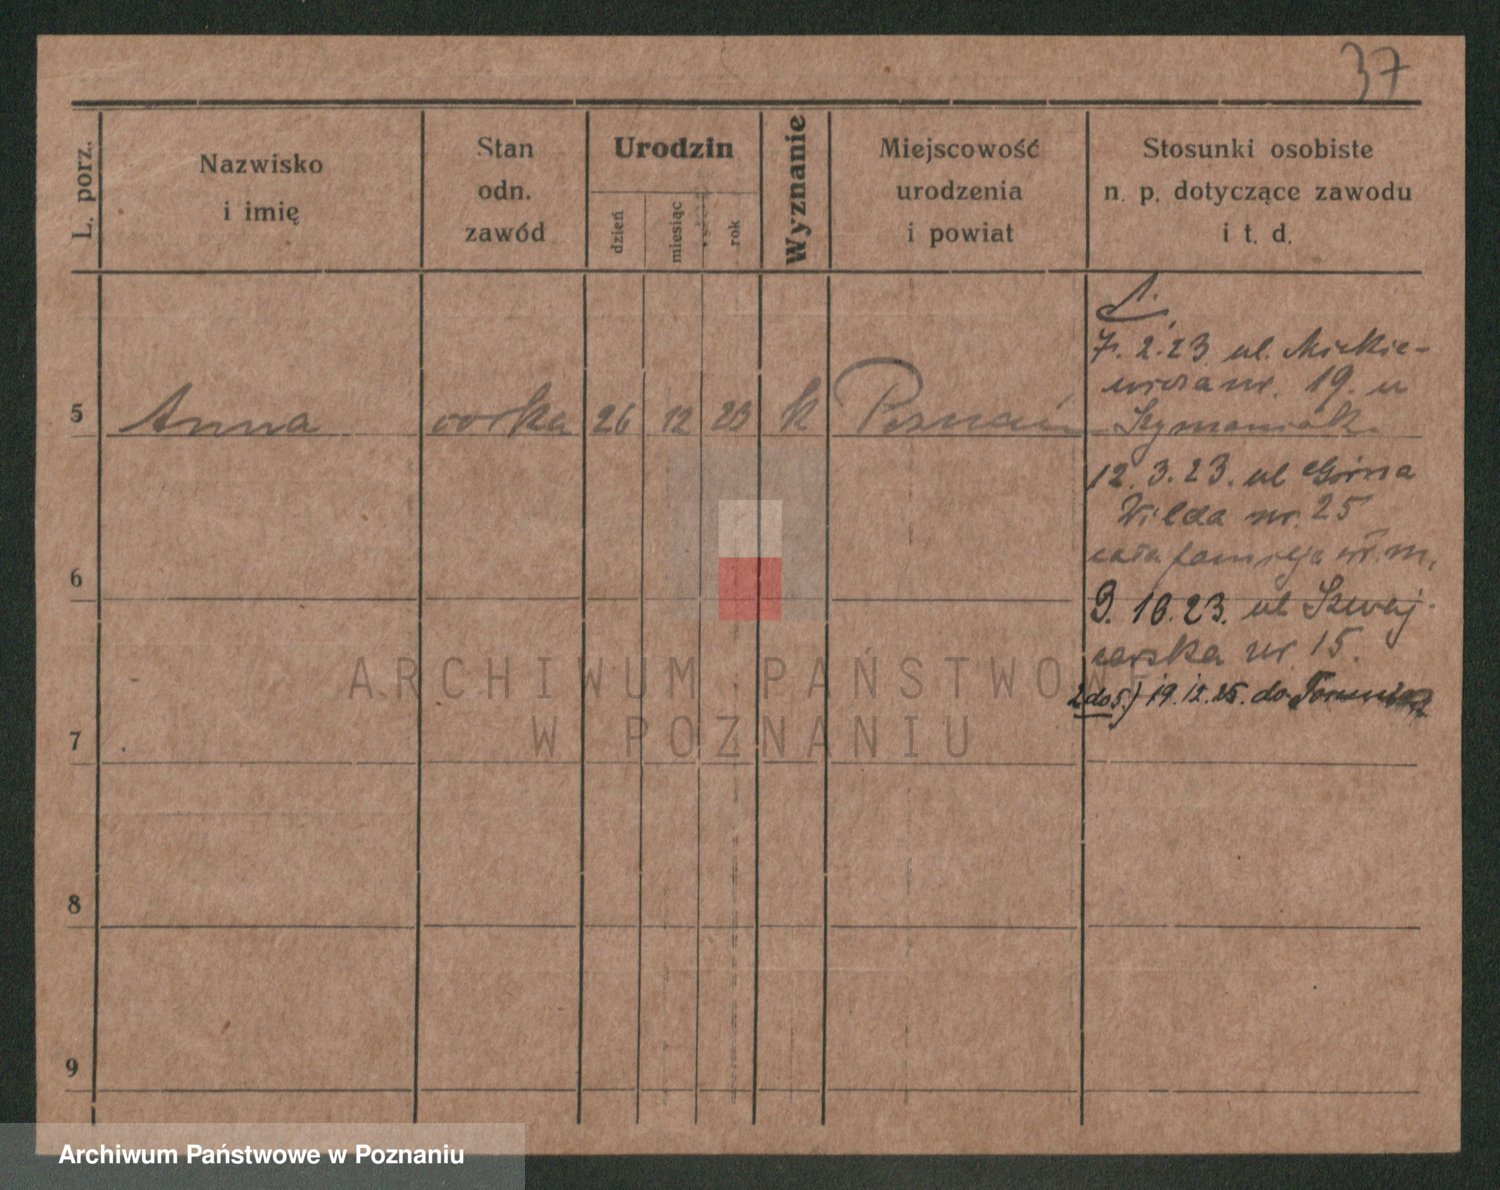 37
L. porz.
Nazwisko
i imię
Stan
odn.
zawód
Urodzin
dzień
miesiąc
rok
Wyznanie
Miejscowość
urodzenia
i powiat
Stosunki osobiste
n. p. dotyczące zawodu
i t. d.
1.
7. 2. 23 ul. Mickie-
wicza nr. 19. u
5 Anna córka 26 12 23 k Poznań Szymaniak.
12. 3. 23. ul Górna
Wilda nr. 25
cała familja
6
9. 10. 23. ul Szwaj-
carska nr. 15.
2 do 5.) 19. 12. 25. do Torunia
ARCHIWUM PAŃSTWOWE
W POZNANIU
7
8
9
Archiwum Państwowe w Poznaniu